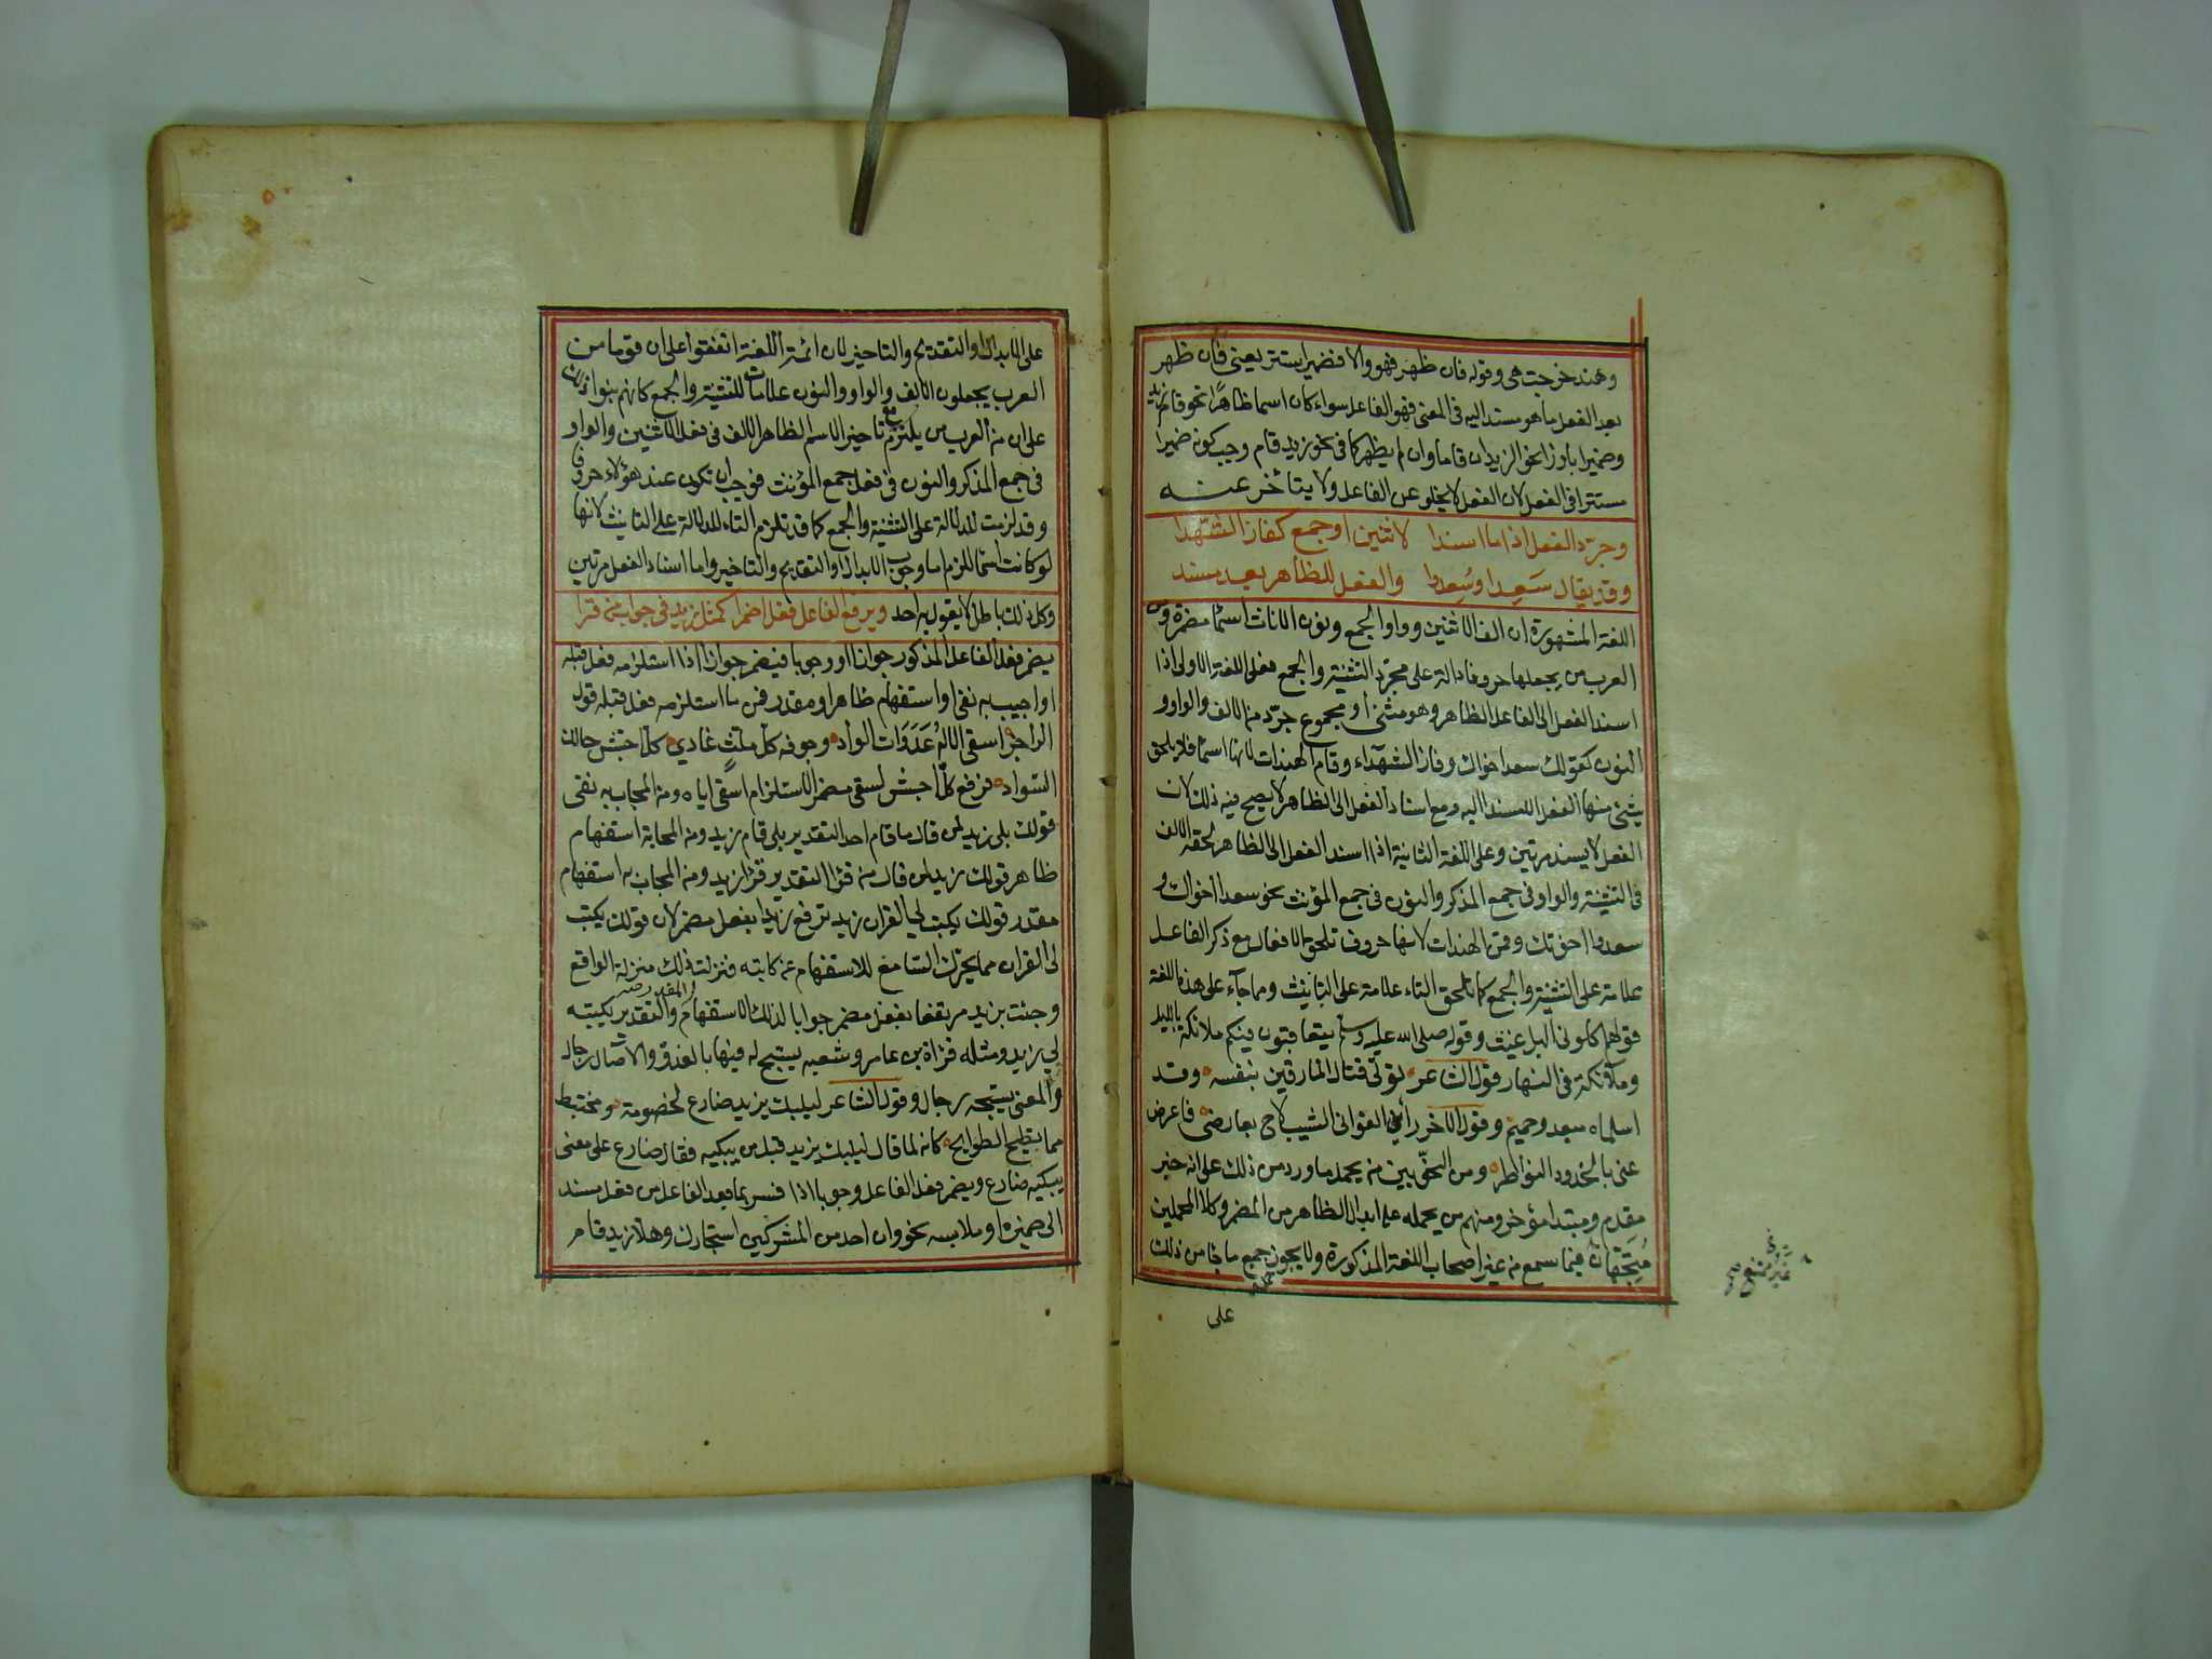 وهند خرجت هى وقوله فان ظهر فهو والا فضمير استتر يعنى فان ظهر
بعد الفعل ما هو مسند اليه فى المعنى فهو الفاعل سواء كان اسما ظاهرًا نحو قام زيد
وضميرا بارزا نحو الزيدان قاما وان لم يظهر كما فى نحو زيد قام وجب كونه ضميرا
مستترا فى الفعل لان الفعل لا يخلو عن الفاعل ولا يتأخر عنه
وجرّد الفعل اذا ما اسندا لاثنين او جمع كفاز الشهدا
وقد يقال سَعِدا وسُعِدوا والفعل للظاهر بعد مسند
اللغة المشهورة ان الف الاثنين وواو الجمع ونون الاناث اسمآ مضمرة ومن
العرب من يجعلها حروفا دالة على مجرّد التثنية والجمع فعلى اللغة الاولى اذا
اسند الفعل الى الفاعل الظاهر وهو مثنى أو مجموع جرّد من الالف والواو و
النون كقولك سعد اخواك وفاز الشهدآء وقام الهندات لانها اسمآ فلا يلحق
شئ منها الفعل الا مسندا اليه ومع اسناد الفعل الى الظاهر لا يصح فيه ذلك لان
الفعل لا يسند مرتين وعلى اللغة الثانية اذا اسند الفعل الى الظاهر لحقته الالف
فى التثنية والواو فى جمع المذكر والنون فى جمع المؤنث نحو سعدا أخواك و
سعدوا اخوتك وقمن الهندات لانها حروف تلحق الافعال مع ذكر الفاعل
علامة على التثنية والجمع كما تلحق التاء علامة على التانيث ومما جآء على هذه اللغة
قولهم اكلونى البراغيث وقوله صلى الله عليه وسلم يتعاقبون فيكم ملائكة بالليل
وملآئكة فى النهار قول الشاعر تولّى قتال المارقين بنفسه وقد
اسلماه مبعد وحميم وقول الآخر رأين الغوانى الشيب لاح بعارضى فاعرض
عنى بالخدود النواظر ومن النحويين من يحمل ما ورد من ذلك على انه خبر
مقدم ومبتدا مؤخر ومنهم من يحمله على ابدال الظاهر من المضمر وكلا المحملين
فيما سمع من غير اصحاب اللغة المذكورة ولا يجوز حمل جميع ما جا من ذلك
على
غير ممتنع
على الابدال او التقديم والتاخير لان ائمة اللغة اتفقوا على ان قوما من
العرب يجعلون الالف والواو والنون علامات للتثنية والجمع كانهم بنوا ذلك
على ان من العرب من يلتزم مع تاخير الاسم الظاهر الالف فى فعل الاثنين والواو
فى جمع المذكر والنون فى فعل جمع المؤنث فوجب ان تكون عند هؤلاء حروفا
وقد لزمت للدلالة على التثنية والجمع كما قد تلزم التاء للدلالة على التانيث لانها
لو كانت اسما للزم اما وجوب الابدال او التقديم والتاخير واما اسناد الفعل مرتين
وكل ذلك باطل لا يقول به احد ويرفع الفاعل فعل اضمرا كمثل زيد فى جواب من قرا
يضمر فعل الفاعل المذكور جوازا او وجوبا فيضمر جوازا اذا استلزمه فعل قبله
او اجيب به نفى او استفهام ظاهر او مقدر فمن ما استلزمه فعل قبله قول
الراجز اسقى الالهُ عَدَوَات الوادِ وجوفه كلّ ملثٍ غادى كل اجش حالك
السواد فرفع كل اجش بسقى مضمر الاستلزام اسقى اياه ومن المجاب به نفى
قولك بلى زيد لمن قال ما قام احد التقدير بلى قام زيد ومن المجاب به استفهام
ظاهر قولك زيد لمن قال من قرا التقدير قرا زيد ومن المجاب به استفهام
مقدر قولك يكتب لى القرآن زيد ترفع زيدا بفعل مضمر لان قولك يكتب
لى القران مما يحرك السامع للاستفهام عن كاتبه فنزلت ذلك منزلة الواقع
وجئت بزيد مرتفعا بفعل مضمر جوابا لذلك الاستفهام المقدر والتقدير يكتبه
لى زيد ومثله قراة بن عامر وشعبه يسبح له فيها بالغدو والاصال رجال
والمعنى يسبحه رجال وقول الشاعر ليبك يزيد ضارع لخصومة ومختبط
مما تطيح الطوايح كانه لما قال ليبك يزيد قيل من يبكيه فقال ضارع على معنى
يبكيه ضارع ويضمر فعل الفاعل وجوبا اذا فسر بما بعد الفاعل من فعل مسند
الى ضميره او ملابسه نحو وان احد من المشركين استجارك وهلا زيد قام